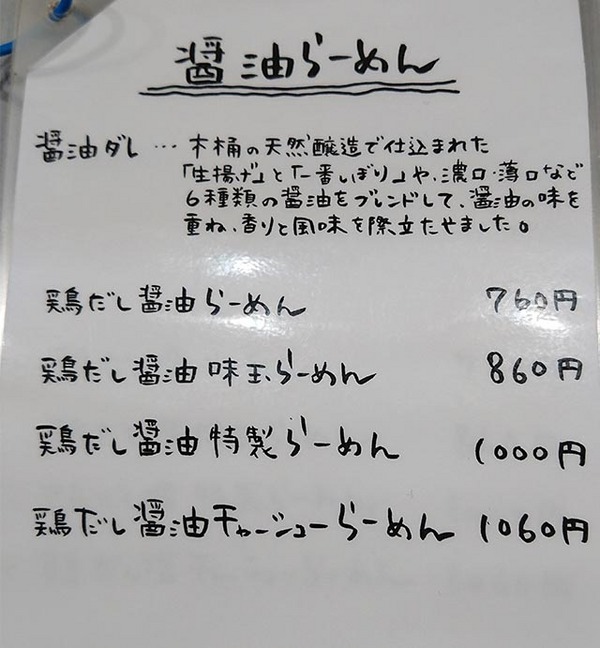 醤油らーめん
醤油ダレ … 木桶の天然醸造で仕込まれた
「生揚げ」と「一番しぼり」や、濃口・薄口など
6種類の醤油をブレンドして、醤油の味を
重ね、香りと風味を際立たせました。
鶏だし醤油らーめん 760円
鶏だし醤油味玉らーめん 860円
鶏だし醤油特製らーめん 1000円
鶏だし醤油チャーシューらーめん 1060円